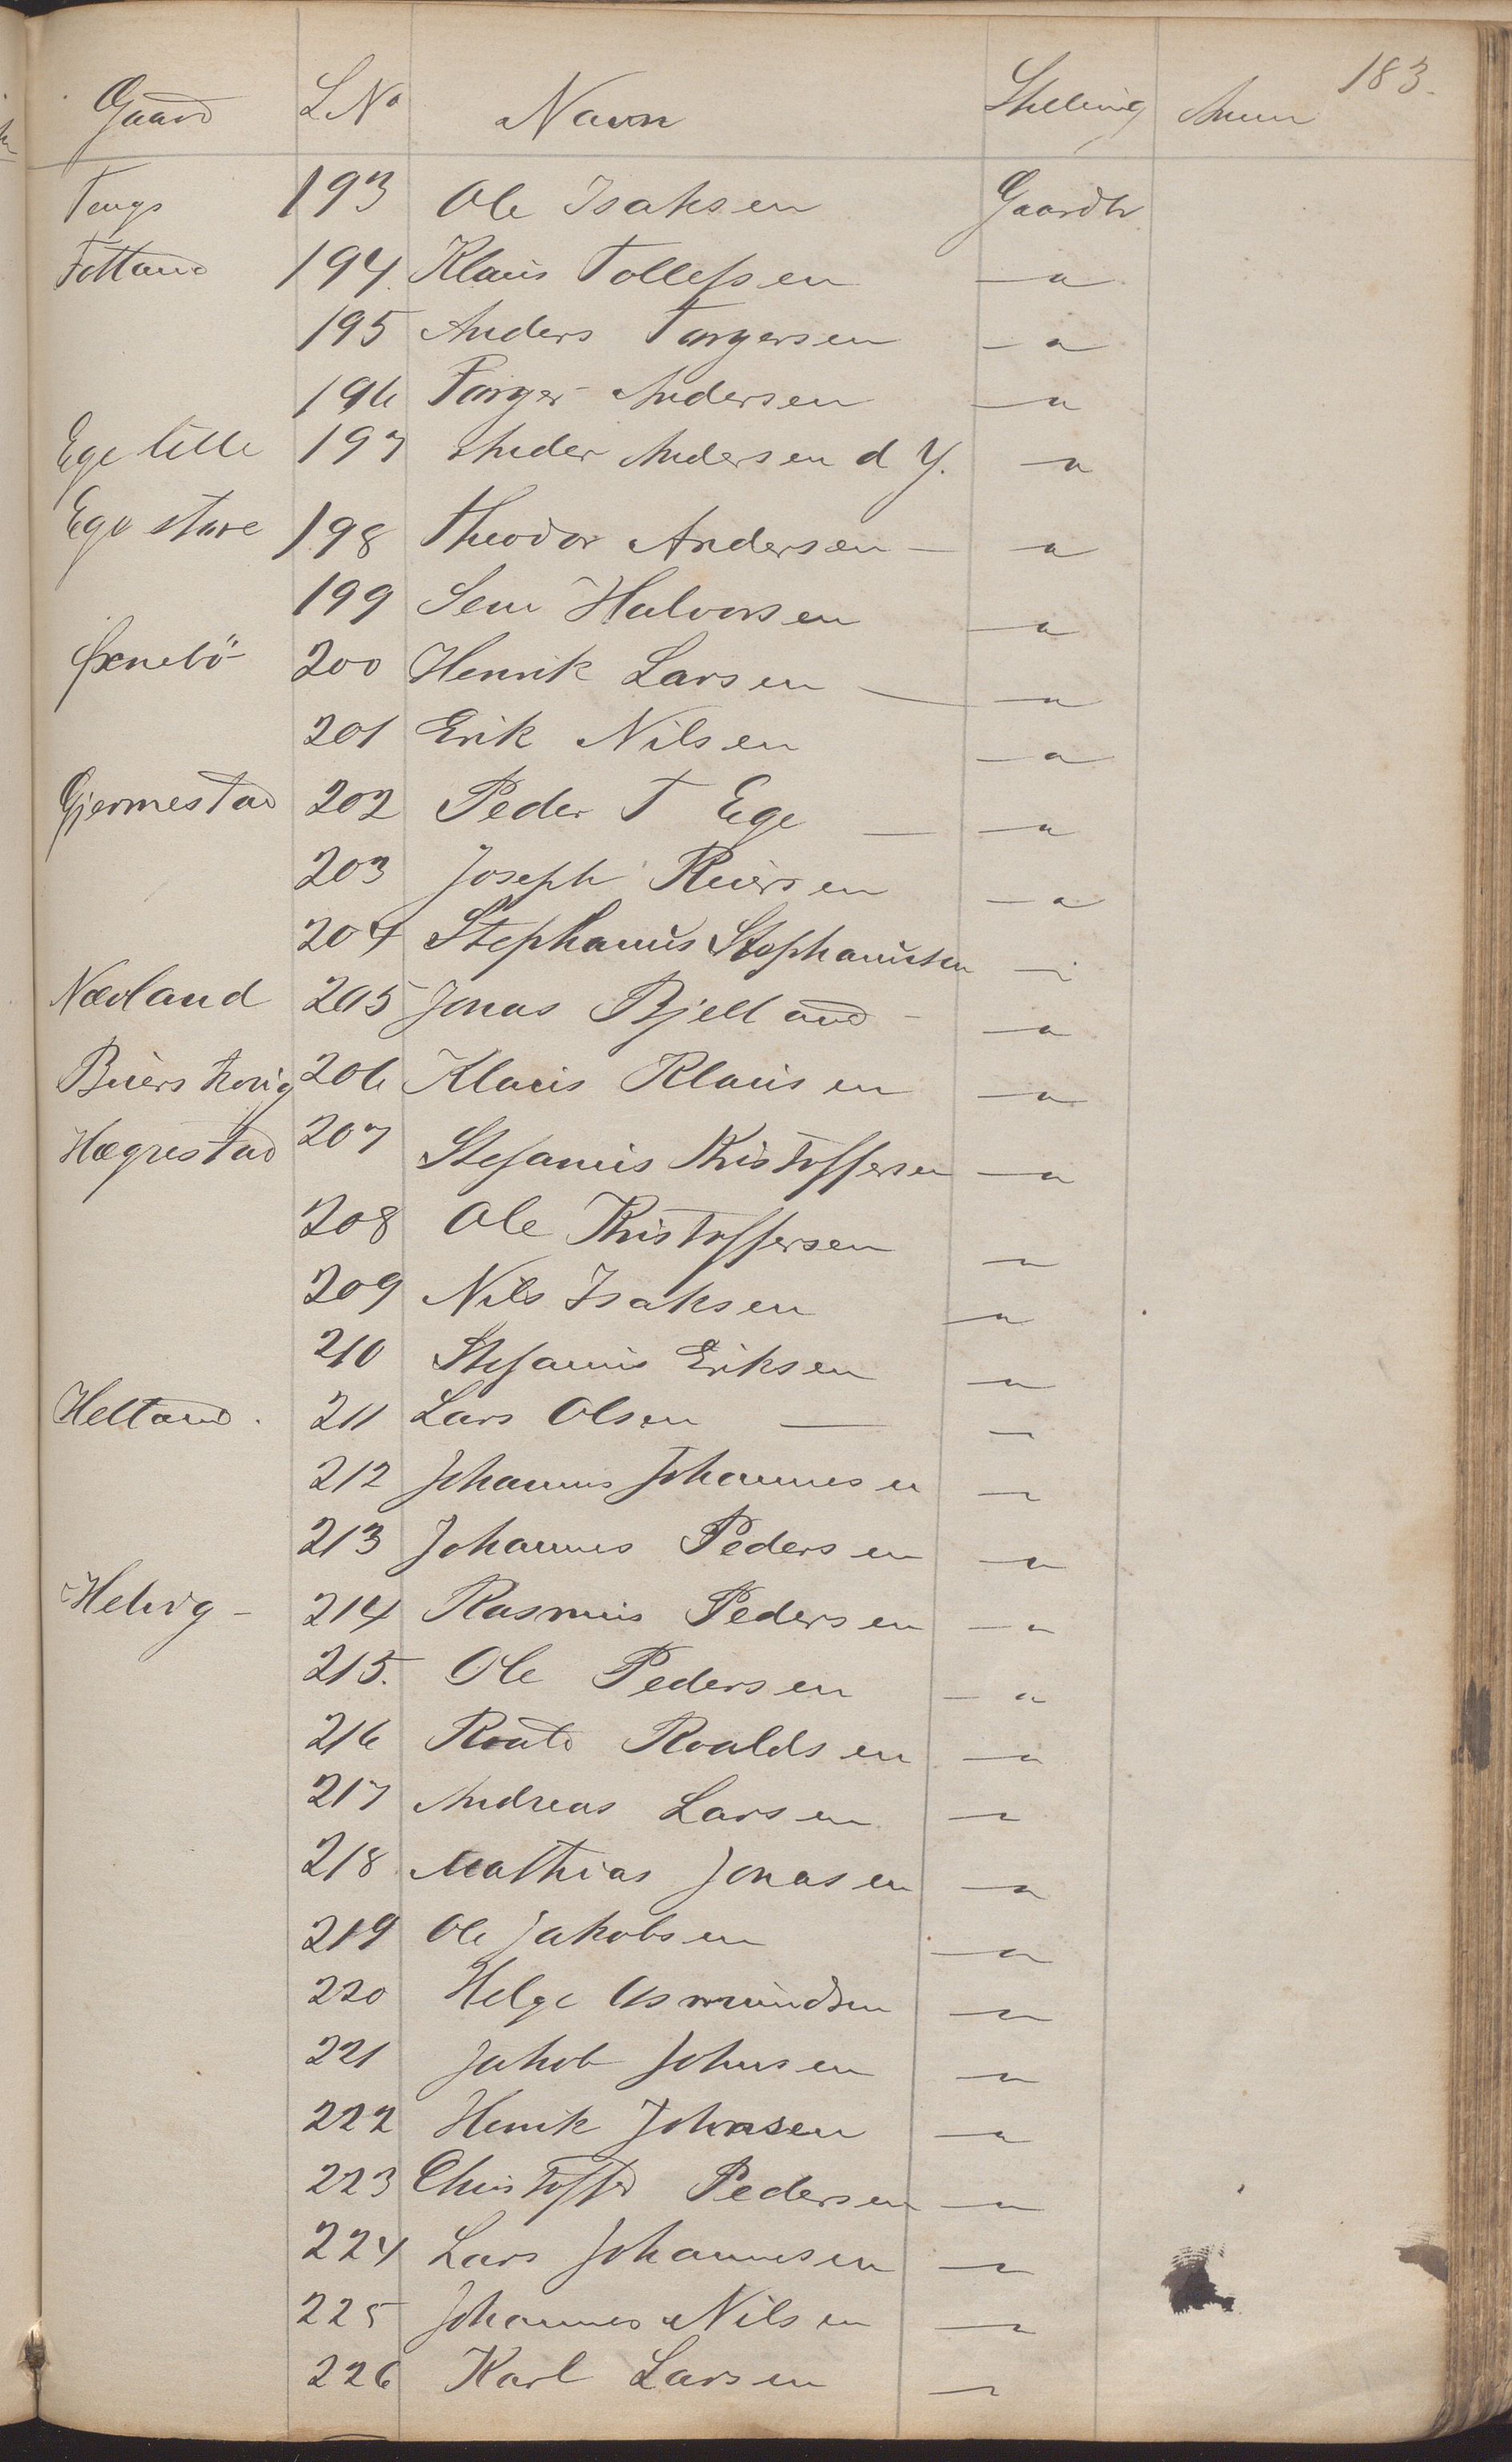 183.
Gaard L No Navn Stilling Anm
Tengs 193 Ole Isaksen Gaardbr
Fotland 194 Klaus Tollefsen —"—
195 Anders Torgersen —"—
196 Torger Andersen —"—
Ege lille 197 Peder Andersen d Y. —"—
Ege store 198 Theodor Andersen —"—
199 Sem Halvorsen —"—
Øxnebö 200 Henrik Larsen —"—
201 Erik Nilsen —"—
Gjermestad 202 Peder T Ege —"—
203 Joseph Reiersen —"—
204 Stephanus Stephanusen —"—
Nævland 205 Jonas Bjelland —"—
Buerskovig 206 Klaus Klausen —"—
Hægrestad 207 Stefanus Kristoffersen —"—
208 Ole Kristoffersen —"—
209 Nils Isaksen —"—
210 Stefanus Eriksen —"—
Helland. 211 Lars Olsen —"—
212 Johannes Johannesen —"—
213 Johannes Pedersen —"—
Helvig 214 Rasmus Pedersen —"—
215. Ole Pedersen —"—
216 Roald Roaldsen —"—
217 Andreas Larsen —"—
218 Mathias Jonasen —"—
219 Ole Jakobsen —"—
220 Helge Asmundsen —"—
221 Jakob Johnsen —"—
222 Henrik Johnsen —"—
223 Christoffer Pedersen —"—
224 Lars Johannesen —"—
225 Johannes Nilsen —"—
226 Karl Larsen —"—